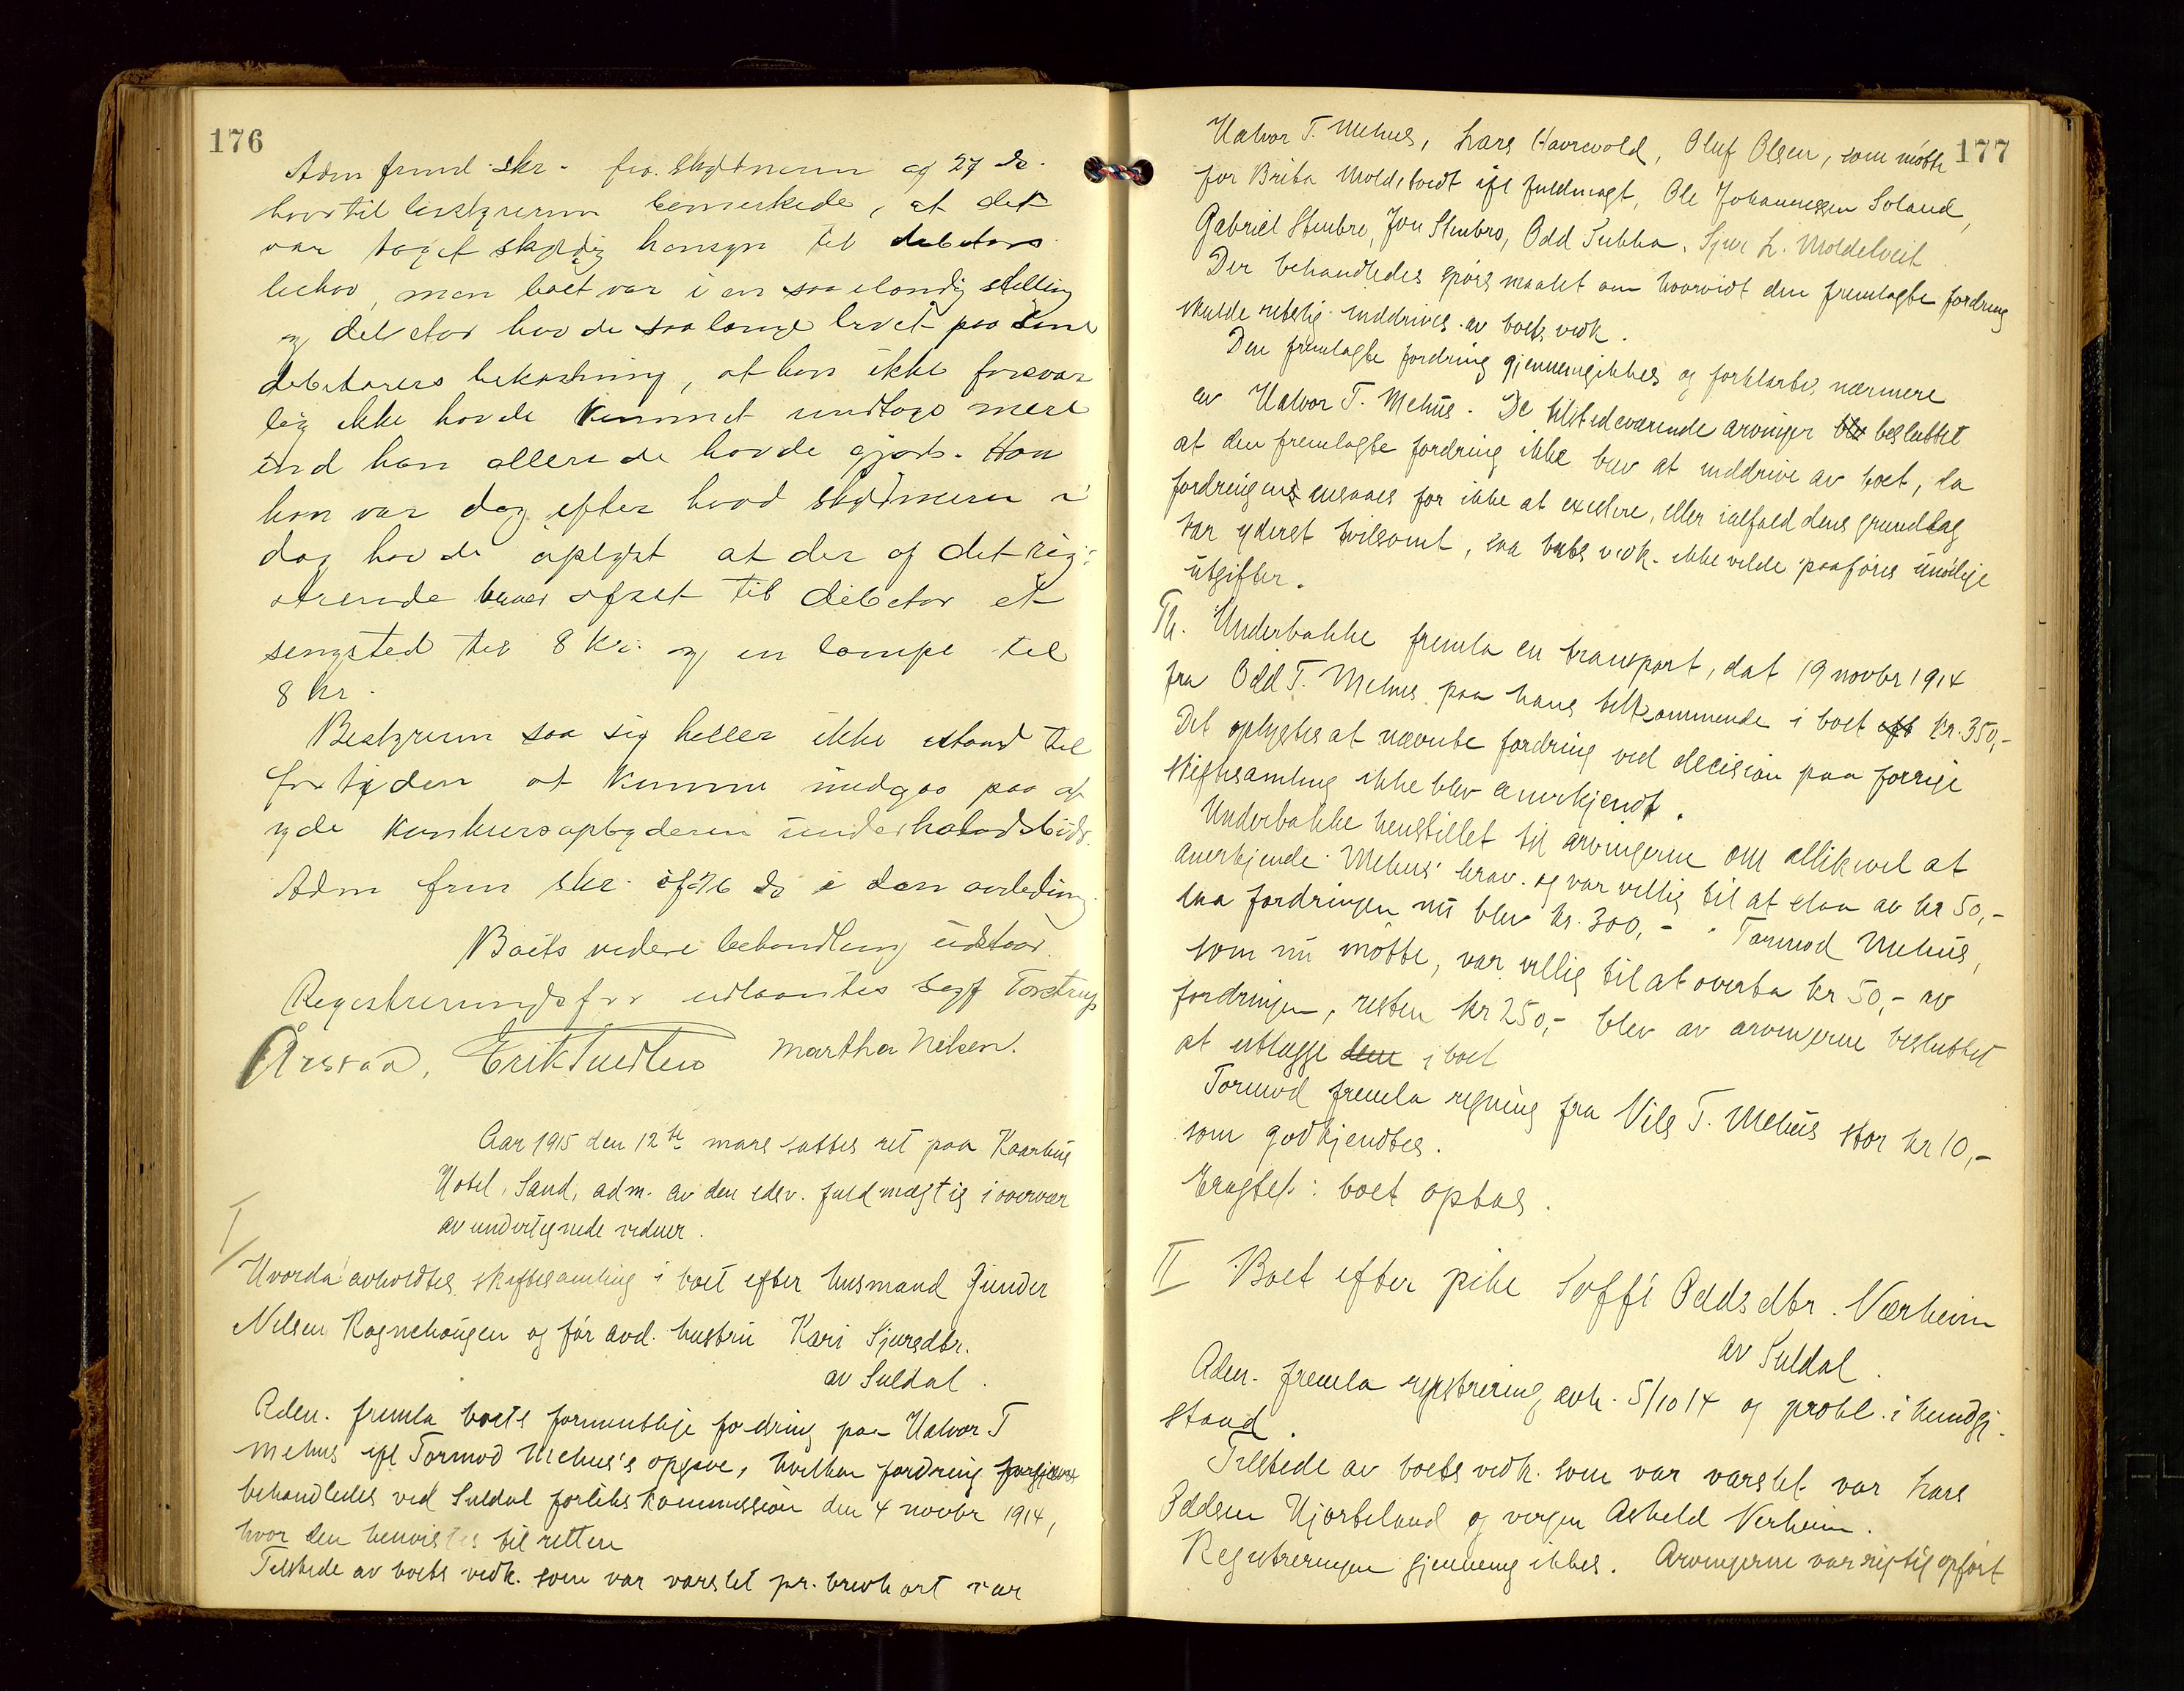 176
Adm frml skr. fra skyldneren af 27 ds.
hvortil bestyreren bemerkede, at det
var taget skyldig hensyn til debitors
behov, men boet var i en saa elendig stilling
og debitor havde saa længe levet paa sine
debitorers bekostning, at han ikke forsvar
lig ikke havde kunnet undtage mere
end han allerede havde gjort. Han
han var dog efter hvad skyldneren i
dag havde oplyst at der af det regi-
strerede var afsat til debitor et
sengested til 8 kr. og en lampe til
8 kr.
Bestyreren saa sig heller ikke istand til
for tiden at kunne indgaa paa at
yde konkursopbyderen underholdsbidr.
Adm frem skr. af 27/6 ds i den anledning.
Boets videre behandling udstaar.
Registreringsforr udlaantes sagf Torstrup
Årstad, Erik Tuedten Martha Nilsen.
Aar 1915 den 12te mars sattes ret paa Kaarhus
Hotel, Sand, adm. av den edsv. fuldmægtig i overvær
av undertegnede vidner.
I
Hvorda avholdtes skiftesamling i boet efter husmand Gunder
Nilsen Rognehaugen og før avd. hustru Kari Sjursdtr.
av Suldal.
Adm. fremla boets formentlige fordring paa Halvor T
Mehus ifl Tormod Mehus's opgave, hvilken fordring
behandledes ved Suldal forlikskommission den 4 novbr 1914,
hvor den henvistes til retten
Tilstede av boets vedk. som var varslet pr. brevkort var
177
Halvor T. Mehus, Lars Havrevold, Oluf Olsen, som møtte
for Brita Moldetvedt ifl fuldmagt, Ole Johannessen Soland,
Gabriel Stenbro, Jon Stenbro, Odd Subba. Sjur L. Moldetveit.
Der behandledes spørsmaalet om hvorvidt den fremlagte fordring
skulde retslig inddrives av boets vedk.
Den fremlagte fordring gjennemgikkes og forklartes nærmere
av Halvor T. Mehus. De tilstedeværende arvinger blev besluttet
at den fremlagte fordring ikke blev at inddrive av boet, da
fordringen ansaaes for ikke at existere, eller ialfald dens grundlag
var yderst tvilsomt, saa boets vedk. ikke vilde paaføres unødige
utgifter.
Th. Underbakke fremla en transport, dat 19 novbr 1914
fra Odd T. Mehus paa hans tilkommende i boet kr. 350,-
Det oplystes at nævnte fordring ved decision paa forrige
skiftesamling ikke blev anerkjendt.
Underbakke henstillet til arvingerne om allikevel at
anerkjende Mehus' krav. og var villig til at slaa av kr 50,-
saa fordringen nu blev kr. 300,- . Tormod Mehus,
som nu møtte, var villig til at overta kr 50,- av
fordringen, resten kr 250,- blev av arvingerne besluttet
at utlægge dem i boet
Tormod fremla regning fra Nils T. Mehus stor kr 10,-
som godkjendtes.
Eragtet: boet optas.
II Boet efter pike Soffi Oddsdtr. Nærheim
av Suldal.
Adm. fremla registrering avh. 5/10 14 og prokl. i kundgj.
stand.
Tilstede av boets vedk. som var varslet var Lars
Oddsen Hjorteland og vergen Asheld Nerheim.
Registreringen gjennemgikkes. Arvingerne var rigtig opført